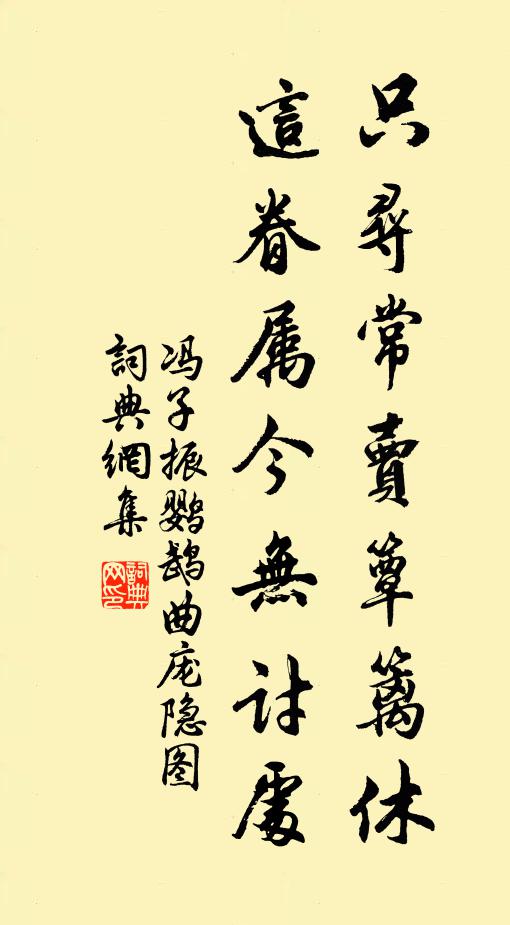 只尋常賣簟籬休
這眷属今無討處
冯子振鹦鹉曲庞隐图
詞典網集
詞典网印